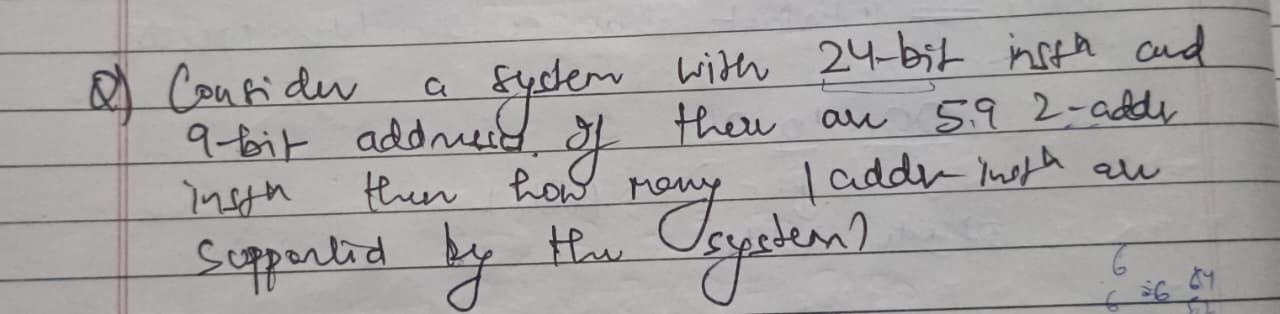 Q) Consider a system with 24-bit instn and
9-bit address. If there are 59 2-addr
instn then how many 1 addr instn are
supported by the system?
6
6 =6 64